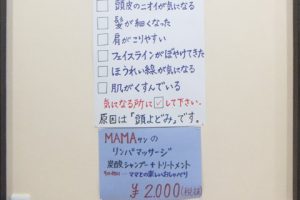 頭皮のニオイが気になる
髪が細くなった
肩がこりやすい
フェイスラインがぼやけてきた
ほうれい線が気になる
肌がくすんでいる
気になる所に☑して下さい。
原因は「頭よどみ」です。
MAMAサンの
リンパマッサージ
炭酸シャンプー+トリートメント
ママとの楽しいおしゃべり
¥2.000(税抜)